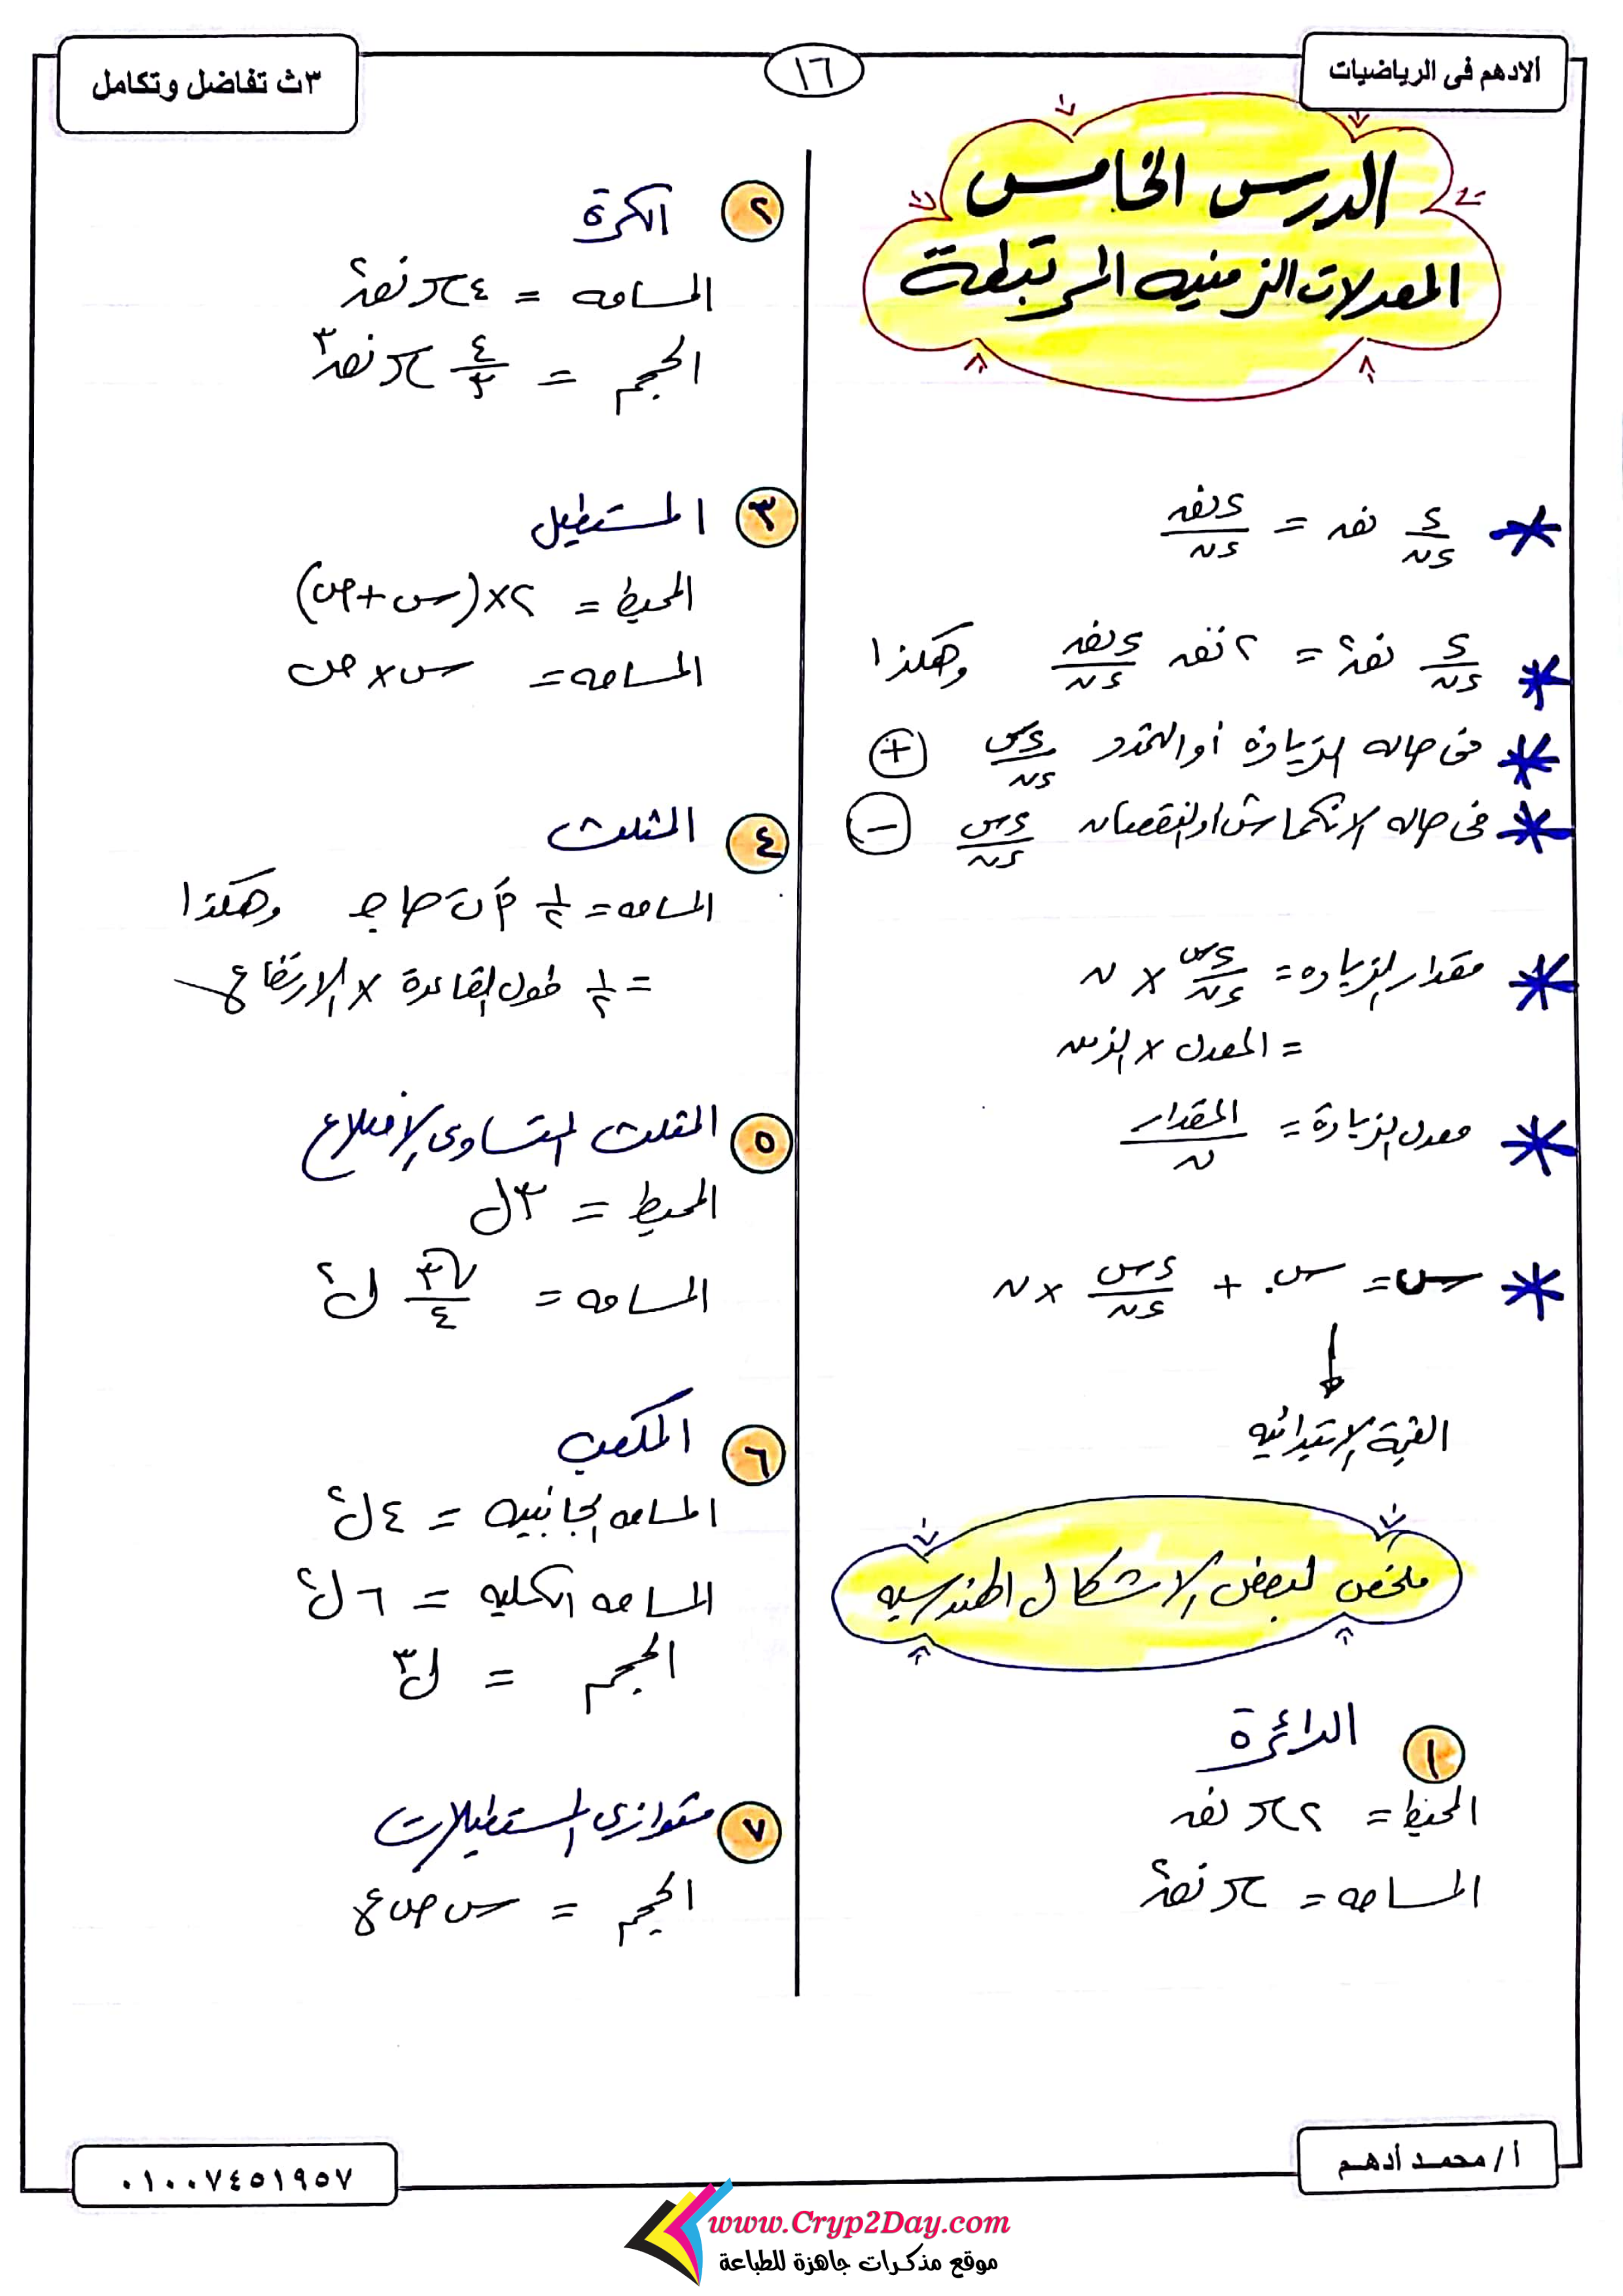 ألادهم فى الرياضيات
١٦
٣ث تفاضل وتكامل
الدرس الخامس
المعدلات الزمنيه المرتبطة
ء/ءن نق = ءنق/ءن
ء/ءن نق² = ٢ نق ءنق/ءن وهكذا
فى حاله الزيادة أو التمدد ءس/ءن (+)
فى حاله الانكماش أو النقصان ءس/ءن (-)
مقدار الزياده = ءس/ءن × ن
= المعدل × الزمن
معدل الزيادة = المقدار/ن
س = س٠ + ءس/ءن × ن
القيمة الابتدائيه
ملخص لبعض الاشكال الهندسيه
١ الدائرة
المحيط = ٢ π نق
المساحه = π نق²
٢ الكرة
المساحه = ٤ π نق²
الحجم = ٤/٣ π نق³
٣ المستطيل
المحيط = ٢×(س+ص)
المساحه = س×ص
٤ المثلث
المساحه = ١/٢ أَ بَ حا جـ وهكذا
= ١/٢ طول القاعدة × الارتفاع
٥ المثلث المتساوى الاضلاع
المحيط = ٣ل
المساحه = √٣/٤ ل²
٦ المكعب
المساحه الجانبيه = ٤ل²
المساحه الكليه = ٦ل²
الحجم = ل³
٧ متوازى المستطيلات
الحجم = س ص ع
أ / محمد أدهم
٠١٠٠٧٤٥١٩٥٧
www.Cryp2Day.com
موقع مذكرات جاهزة للطباعة